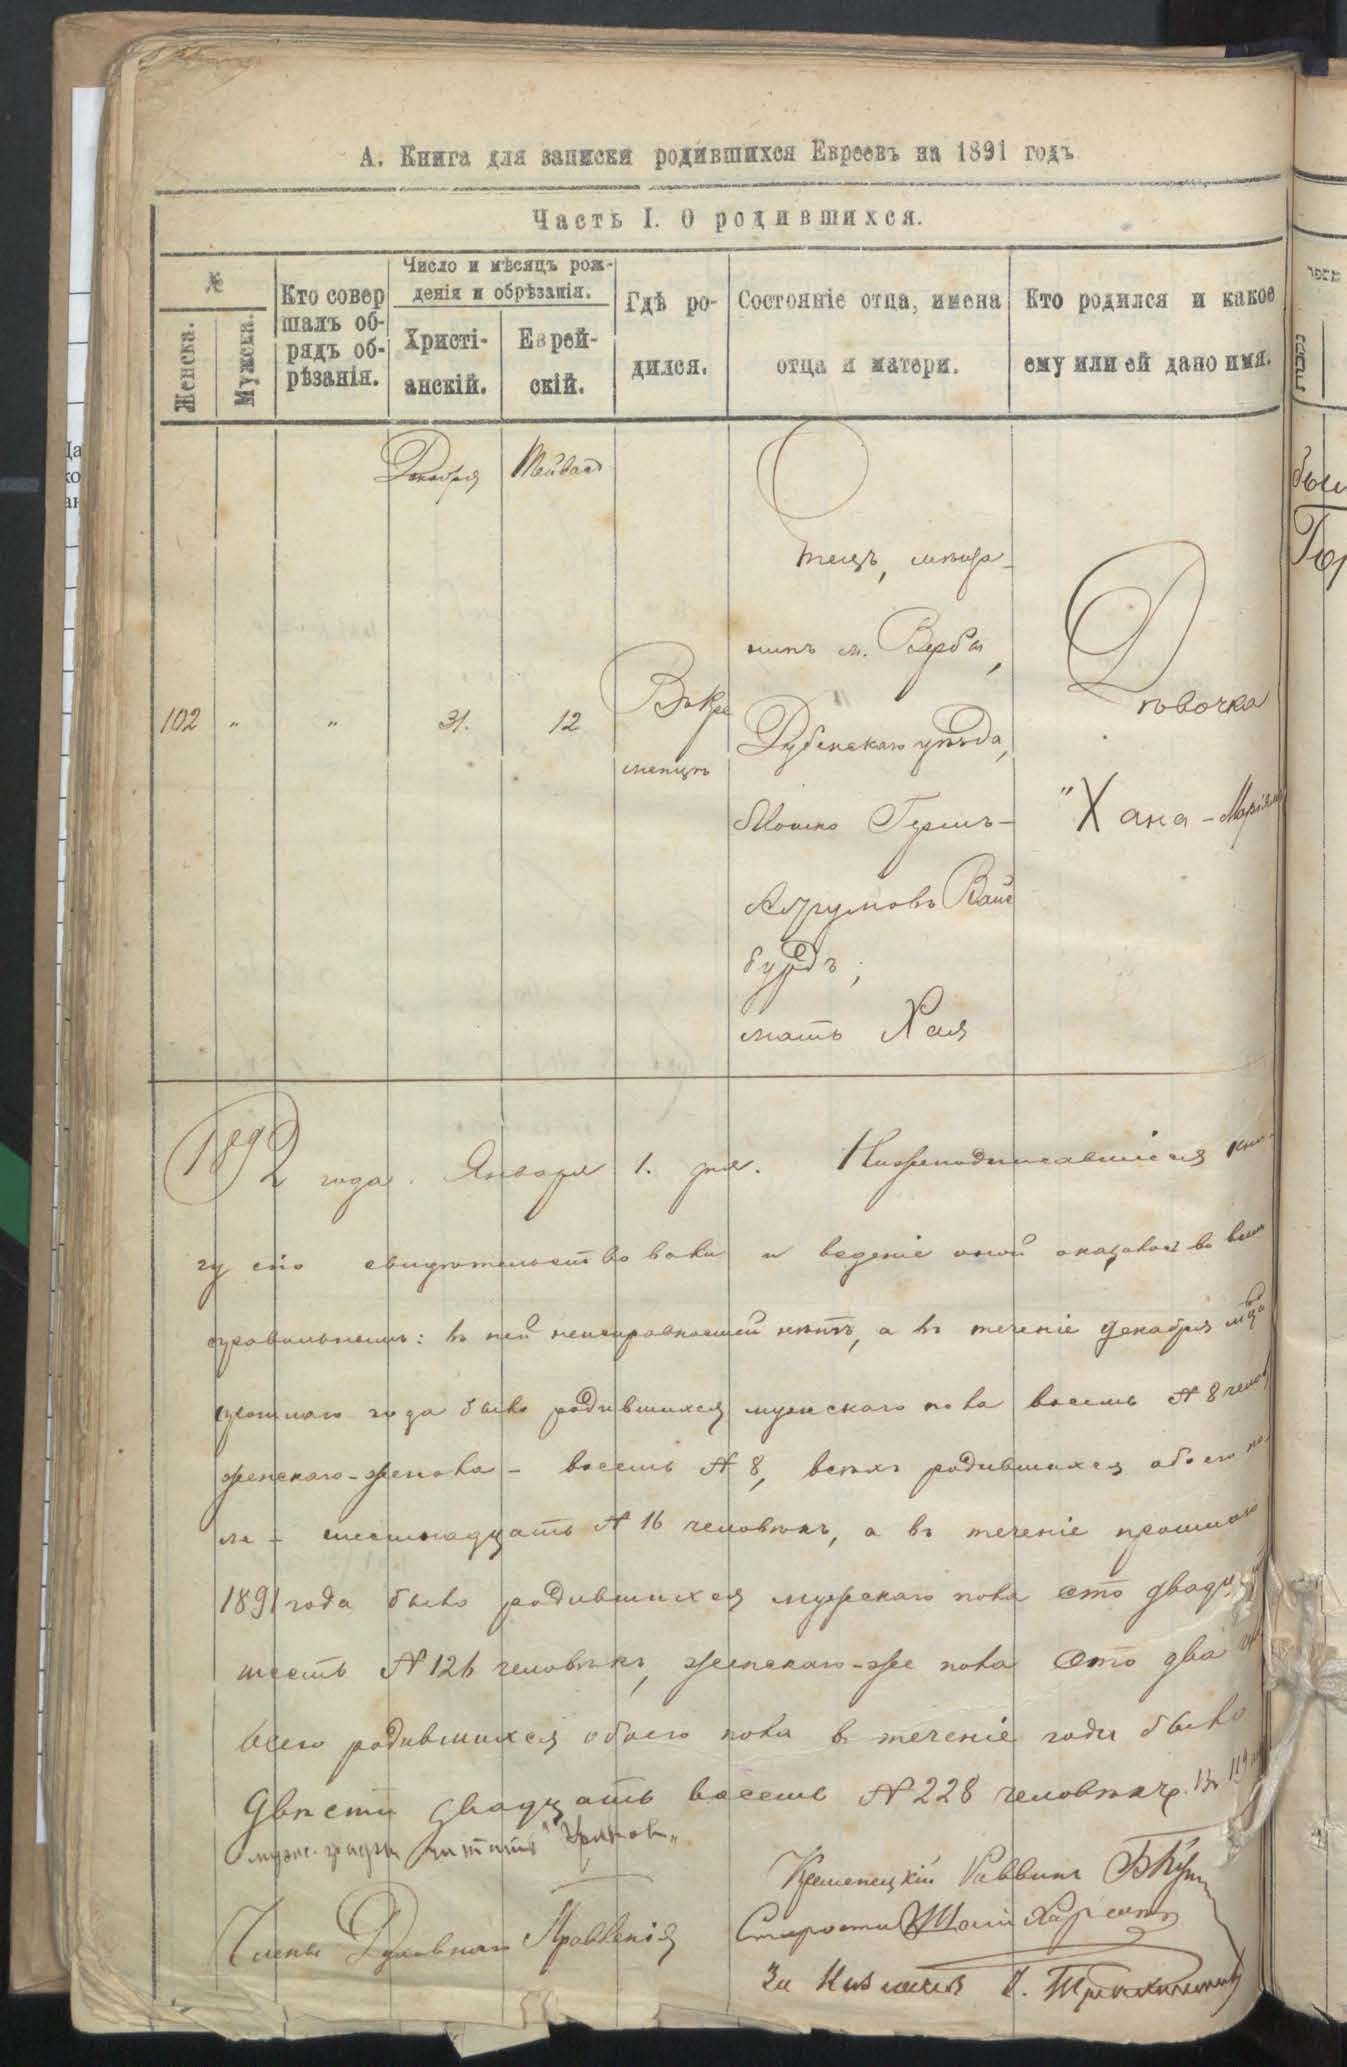 А. Книга для записки родившихся Евреевъ на 1891 годъ
Часть I. О родившихся.
№
Женска.
Мужска.
Кто совер
шалъ об-
рядъ об-
рѣзанія.
Число и мѣсяцъ рож-
денія и обрѣзанія.
Христі-
анскій.
Еврей-
скій.
Гдѣ ро-
дился.
Состояніе отца, имена
отца и матери.
Кто родился и какое
ему или ей дано имя.
Декабря
Тейвасъ
102 " "
31.
12
Въ Кре
менцѣ
Отецъ, мѣща-
нинъ м. Вербы,
Дубенскаго уѣзда,
Мошко Гершъ-
Вайс
бурдъ;
мать Хая
Дѣвочка
"Хана-Маріямъ
1892 года. Января 1. дня. Нижеподписавшіеся кни-
гу сію свидѣтельствовали и веденіе оной оказалось во всемъ
правильнымъ: въ ней неисправностей нѣтъ, а въ теченіе декабря мца
прошлаго года было родившихся мужскаго пола восемь № 8 челов
женскаго-же пола - восемь № 8, всѣхъ родившихся обоего по-
ла - шестнадцать № 16 человѣкъ, а въ теченіе прошлаго
1891 года было родившихся мужскаго пола сто двадцать
шесть № 126 человѣкъ, женскаго-же пола сто два
всего родившихся обоего пола въ теченіе года было
двѣсти двадцать восемь № 228 человѣкъ. Въ 119
муж. графѣ читать
Кременецкій Раввинъ
Члены Духовнаго Правленія
Староста
За Казначея